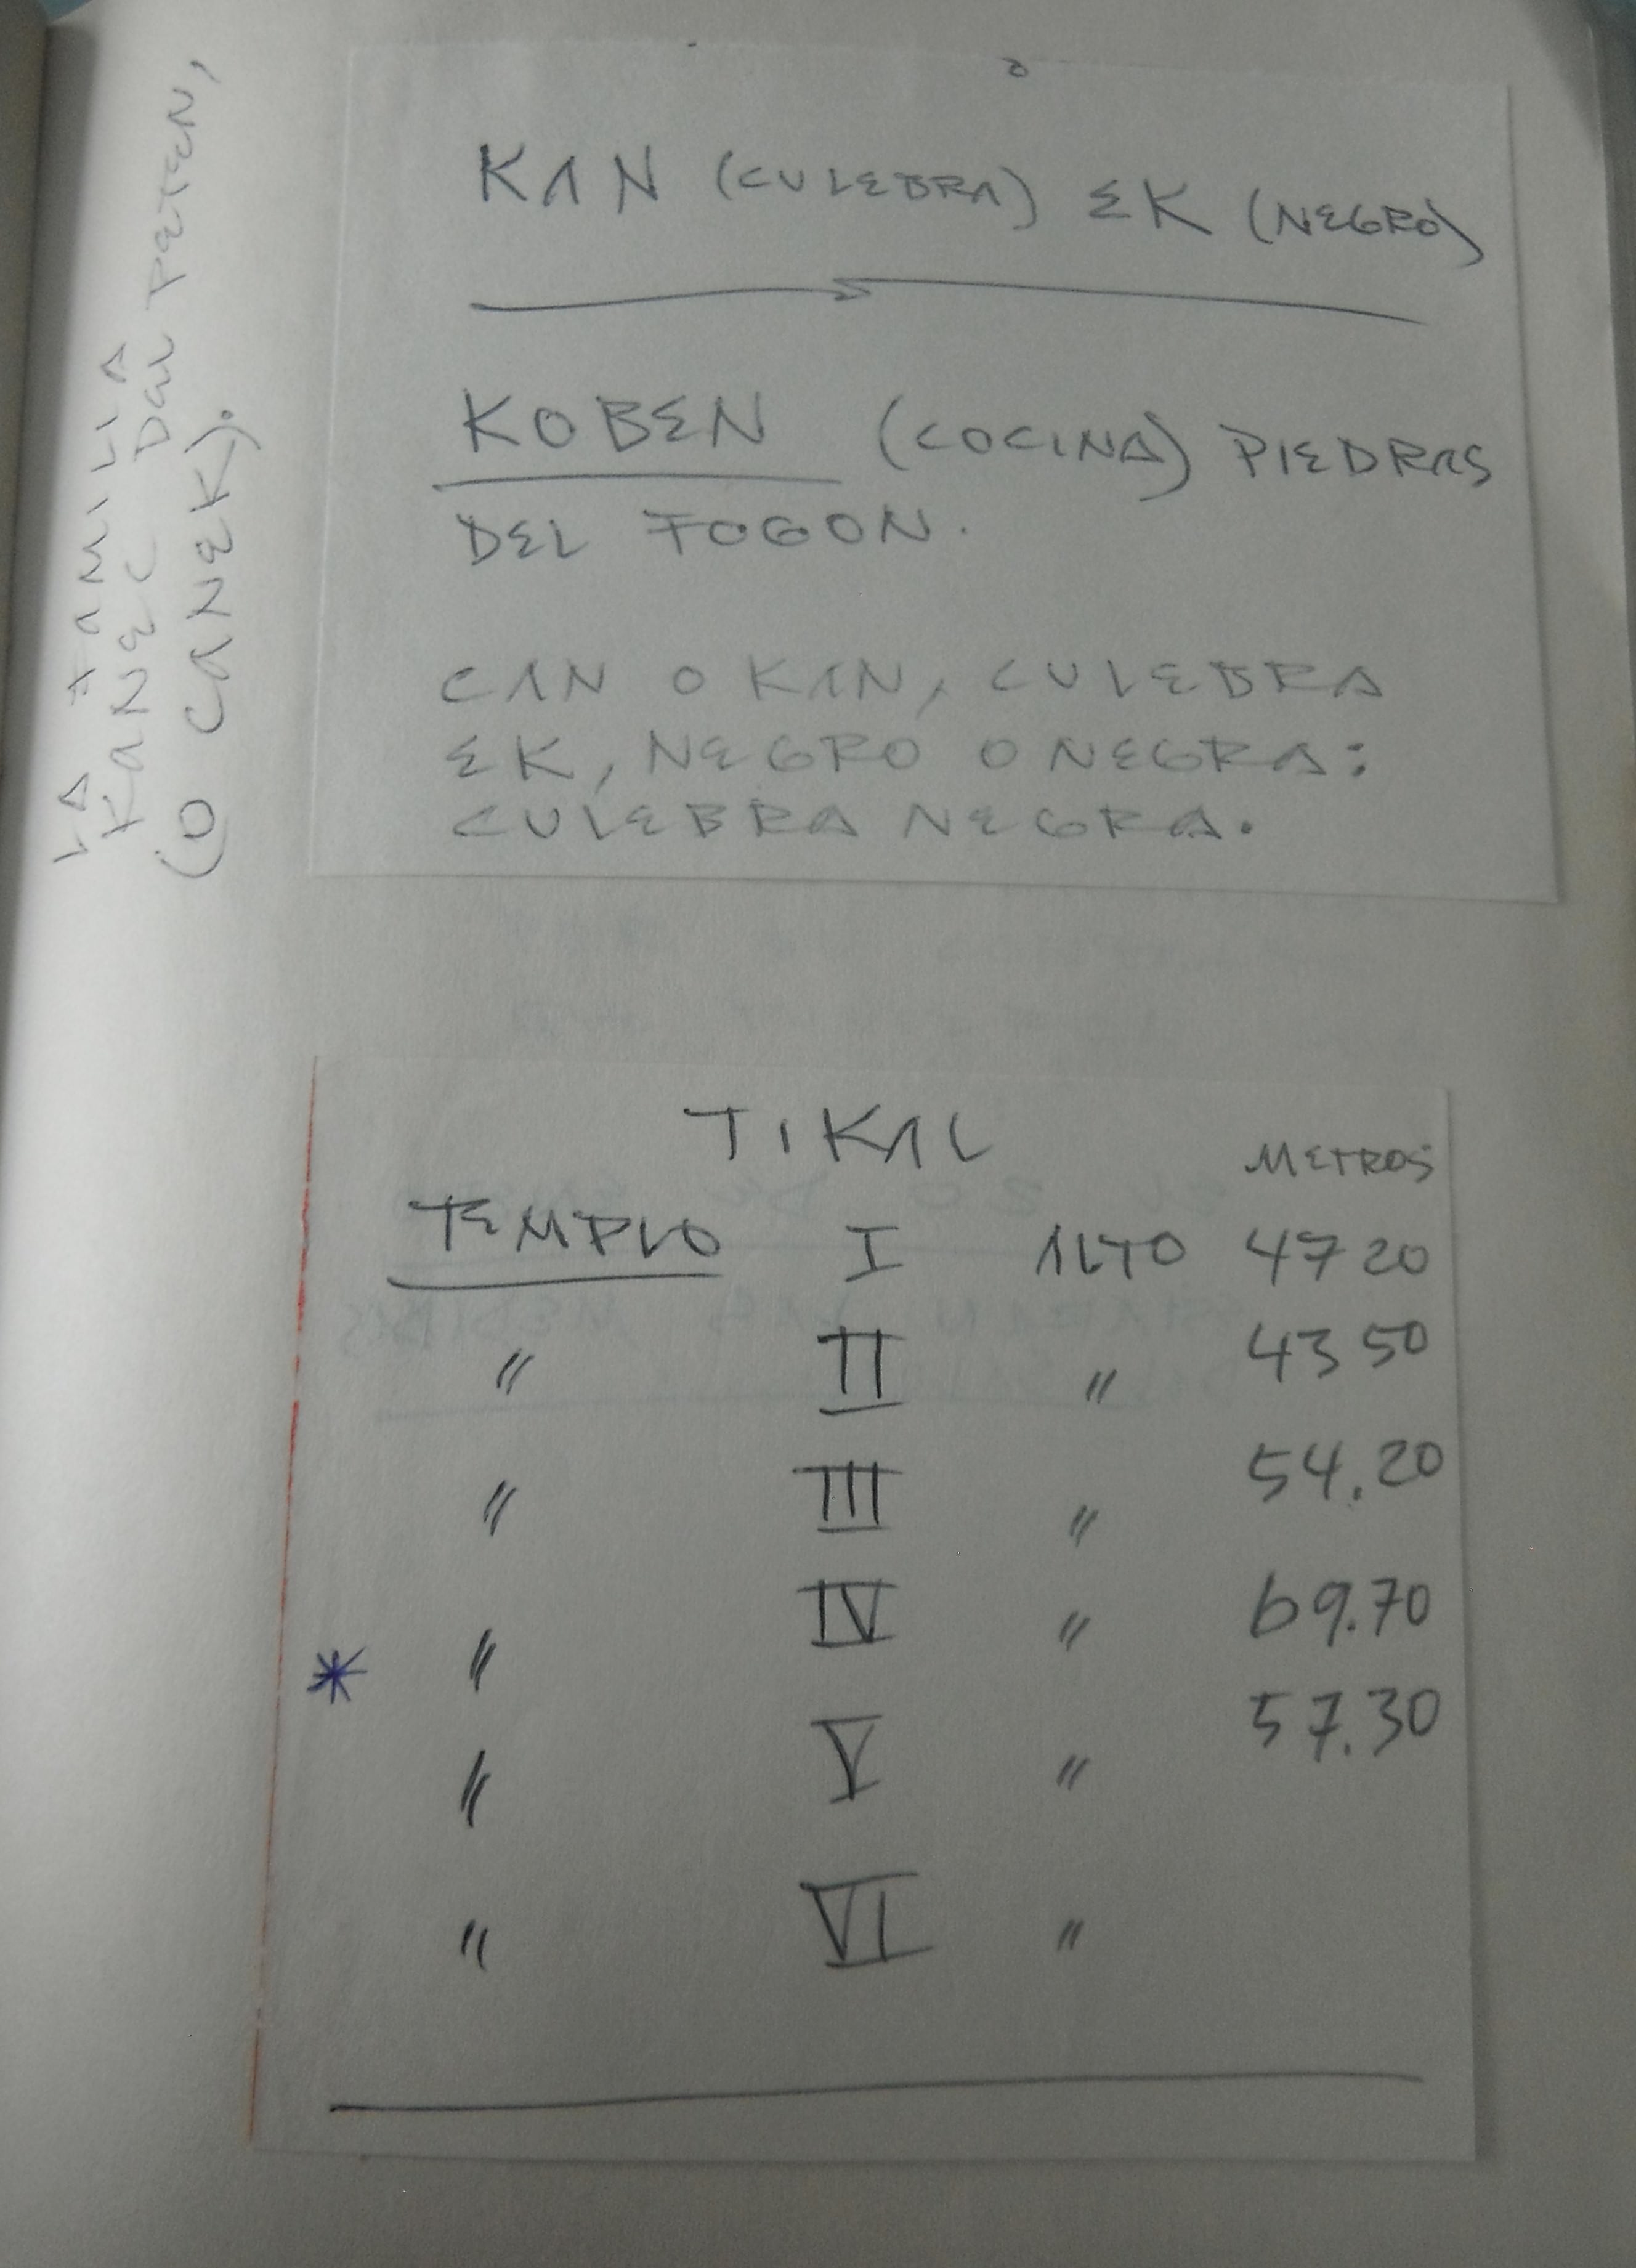 LA FAMILIA
KANEC DEL PETEN,
(O CANEK).
KAN (CULEBRA) EK (NEGRO)
KOBEN (COCINA) PIEDRAS
DEL FOGON.
CAN O KAN, CULEBRA
EK, NEGRO O NEGRA:
CULEBRA NEGRA.
TIKAL
METROS
TEMPLO I ALTO 47 20
" II " 43 50
" III " 54.20
" IV " 69.70
* " V " 57.30
" VI "